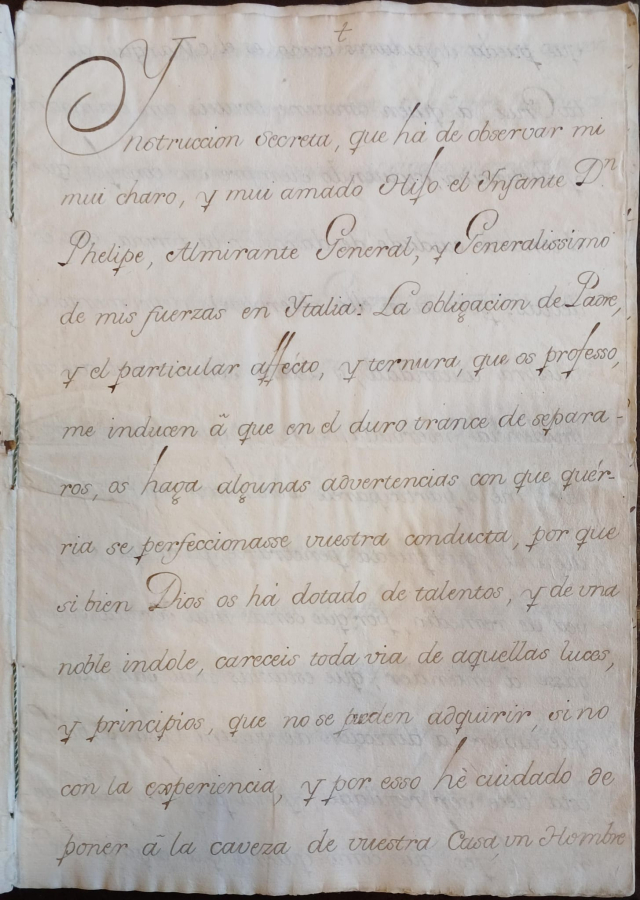 t
Ynstruccion Secreta, que há de observar mi
mui charo, y mui amado Hijo el Ynfante Dn
Phelipe, Almirante General, y Generalissimo
de mis fuerzas en Ytalia: La obligacion de Padre,
y el particular affécto, y ternura, que os professo,
me inducen â que en el duro trance de separa-
ros, os haga algunas advertencias con que quér-
ria se perfeccionasse vuestra conducta, por que
si bien Dios os há dotado de talentos, y de una
noble indole, careceis toda via de aquellas luces,
y principios, que no se pueden adquirir, si no
con la experiencia, y por esso hè cuidado de
poner â la caveza de vuestra Casa, vn Hombre